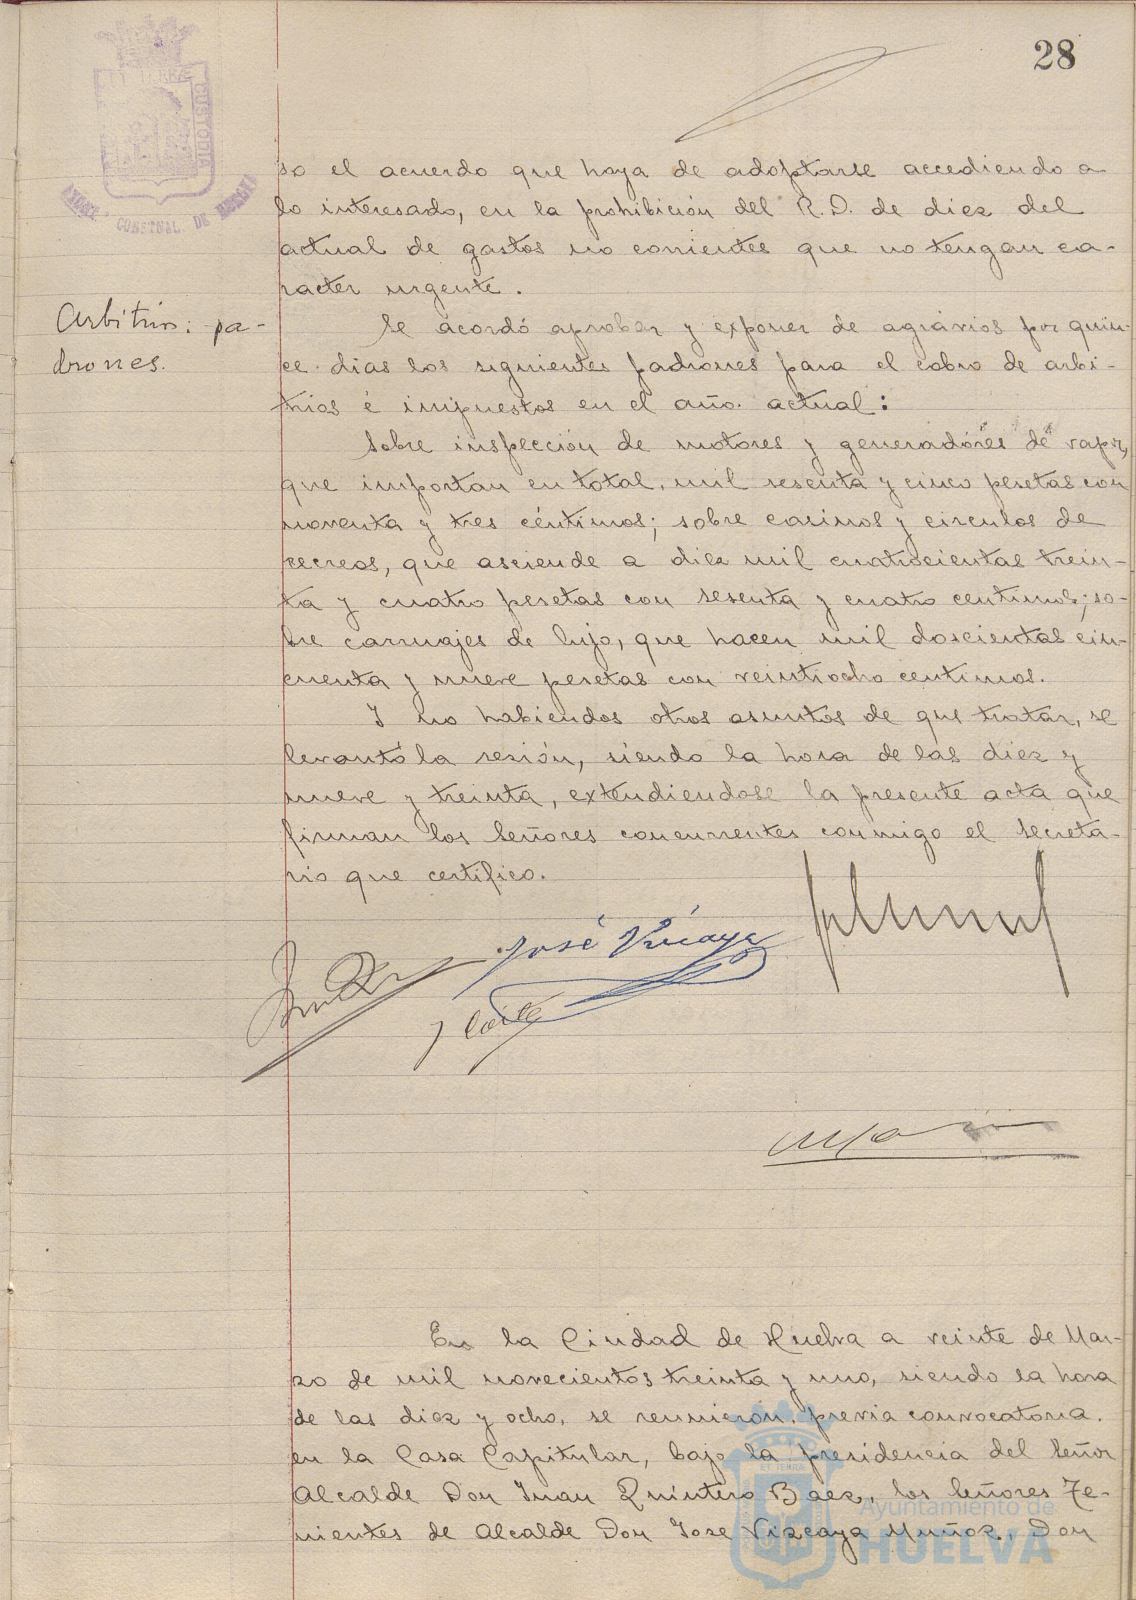 28
so el acuerdo que haya de adoptarse accediendo a
lo interesado, en la prohibición del R.D. de diez del
actual de gastos no corrientes que no tengan ca-
racter urgente.
Arbitrios: pa-
drones.
Se acordó aprobar y exponer de agravios por quin-
ce dias los siguientes padrones para el cobro de arbi-
trios é impuestos en el año actual:
Sobre inspección de motores y generadores de vapor,
que importan en total, mil sesenta y cinco pesetas con
noventa y tres céntimos; sobre casinos y circulos de
recreos, que asciende a diez mil cuatrocientas trein-
ta y cuatro pesetas con sesenta y cuatro centimos; so-
bre carruajes de lujo, que hacen mil doscientas cin-
cuenta y nueve pesetas con veintiocho centimos.
Y no habiendos otros asuntos de que tratar, se
levantó la sesión, siendo la hora de las diez y
nueve y treinta, extendiendose la presente acta que
firman los Señores concurrentes conmigo el Secreta-
rio que certifico.
José Vizcaya
En la Ciudad de Huelva a veinte de Mar-
zo de mil novecientos treinta y uno, siendo la hora
de las diez y ocho, se reunieron, previa convocatoria,
en la Casa Capitular, bajo la presidencia del Señor
Alcalde Don Juan Quintero Báez, los Señores Te-
nientes de Alcalde Don Jose Vizcaya Muñoz, Don
Ayuntamiento de
HUELVA